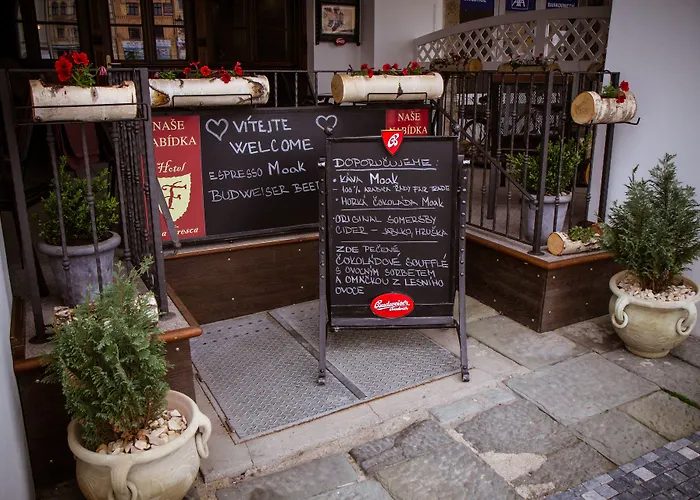 AXA
BANKOVNICTVÍ
NAŠE
NABÍDKA
Hotel
VÍTEJTE
WELCOME
ESPRESSO Moak
BUDWEISER BEER
NAŠE
NABÍDKA
B
DOPORUČUJEME:
• KÁVA Moak
- 100% ARABICA
FAIR TRADE
• HORKÁ ČOKOLÁDA Moak
• ORIGINAL SOMERSBY
CIDER - JABLKO, HRUŠKA
ZDE PEČENÉ
ČOKOLÁDOVÉ SOUFFLÉ
S OVOCNÝM SORBETEM
A OMÁČKOU Z LESNÍHO
OVOCE
Budweiser
Budvar